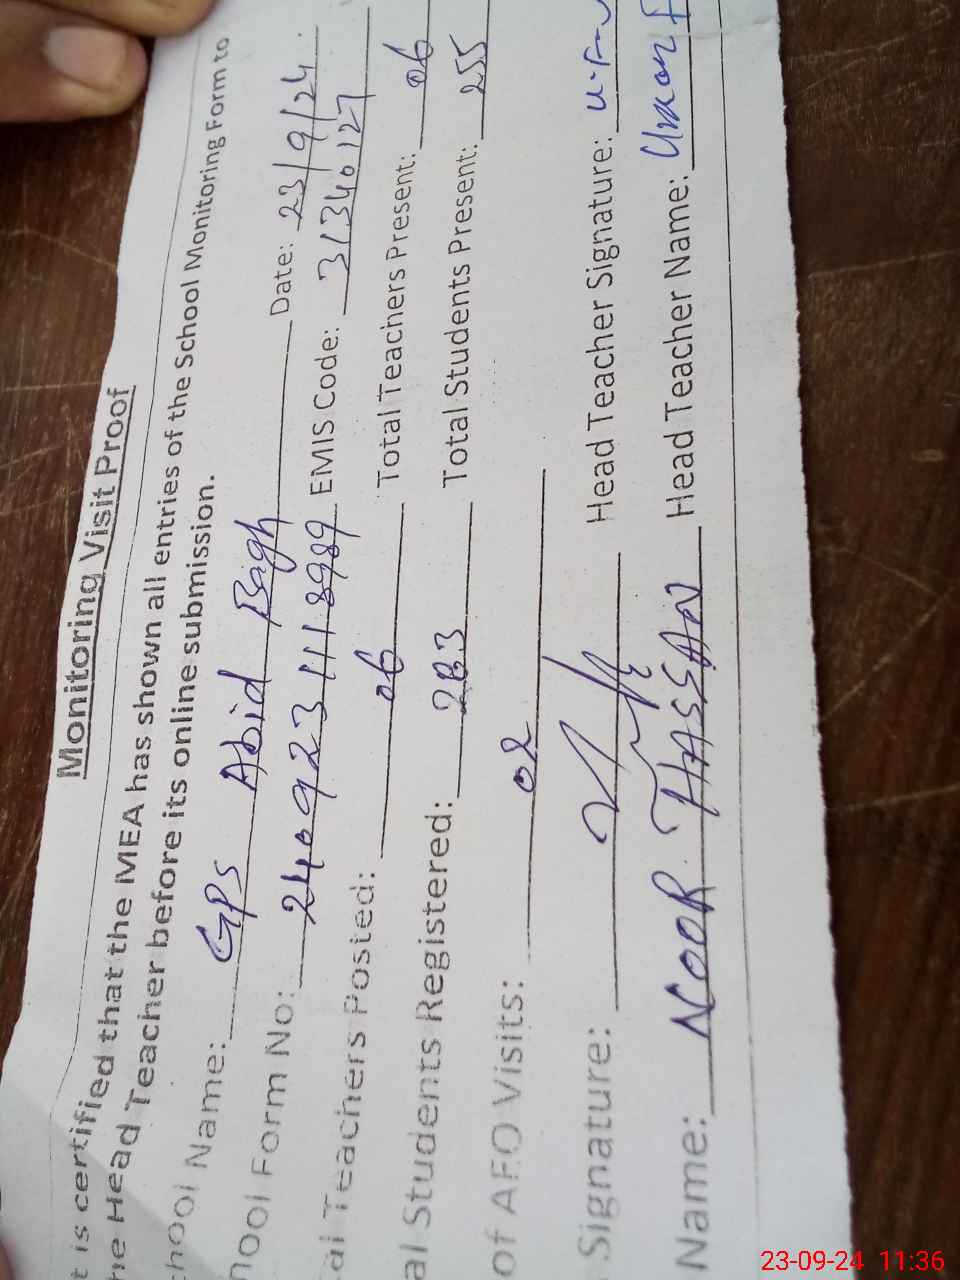 Monitoring Visit Proof
t is certified that the MEA has shown all entries of the School Monitoring Form to
he Head Teacher before its online submission.
chool Name: GPS Abid Bagh Date: 23/9/24
hool Form No: 24092311 8989 EMIS Code: 31340127
al Teachers Posted: 06 Total Teachers Present: 06
al Students Registered: 283 Total Students Present: 255
of AEO Visits: 02
Signature: Head Teacher Signature:
Name: NOOR HASSAN Head Teacher Name:
23-09-24 11:36